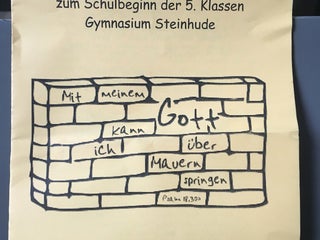 zum Schulbeginn der 5. Klassen
Gymnasium Steinhude
Mit meinem
Gott
kann
ich über
Mauern
springen
Psalm 18,30b